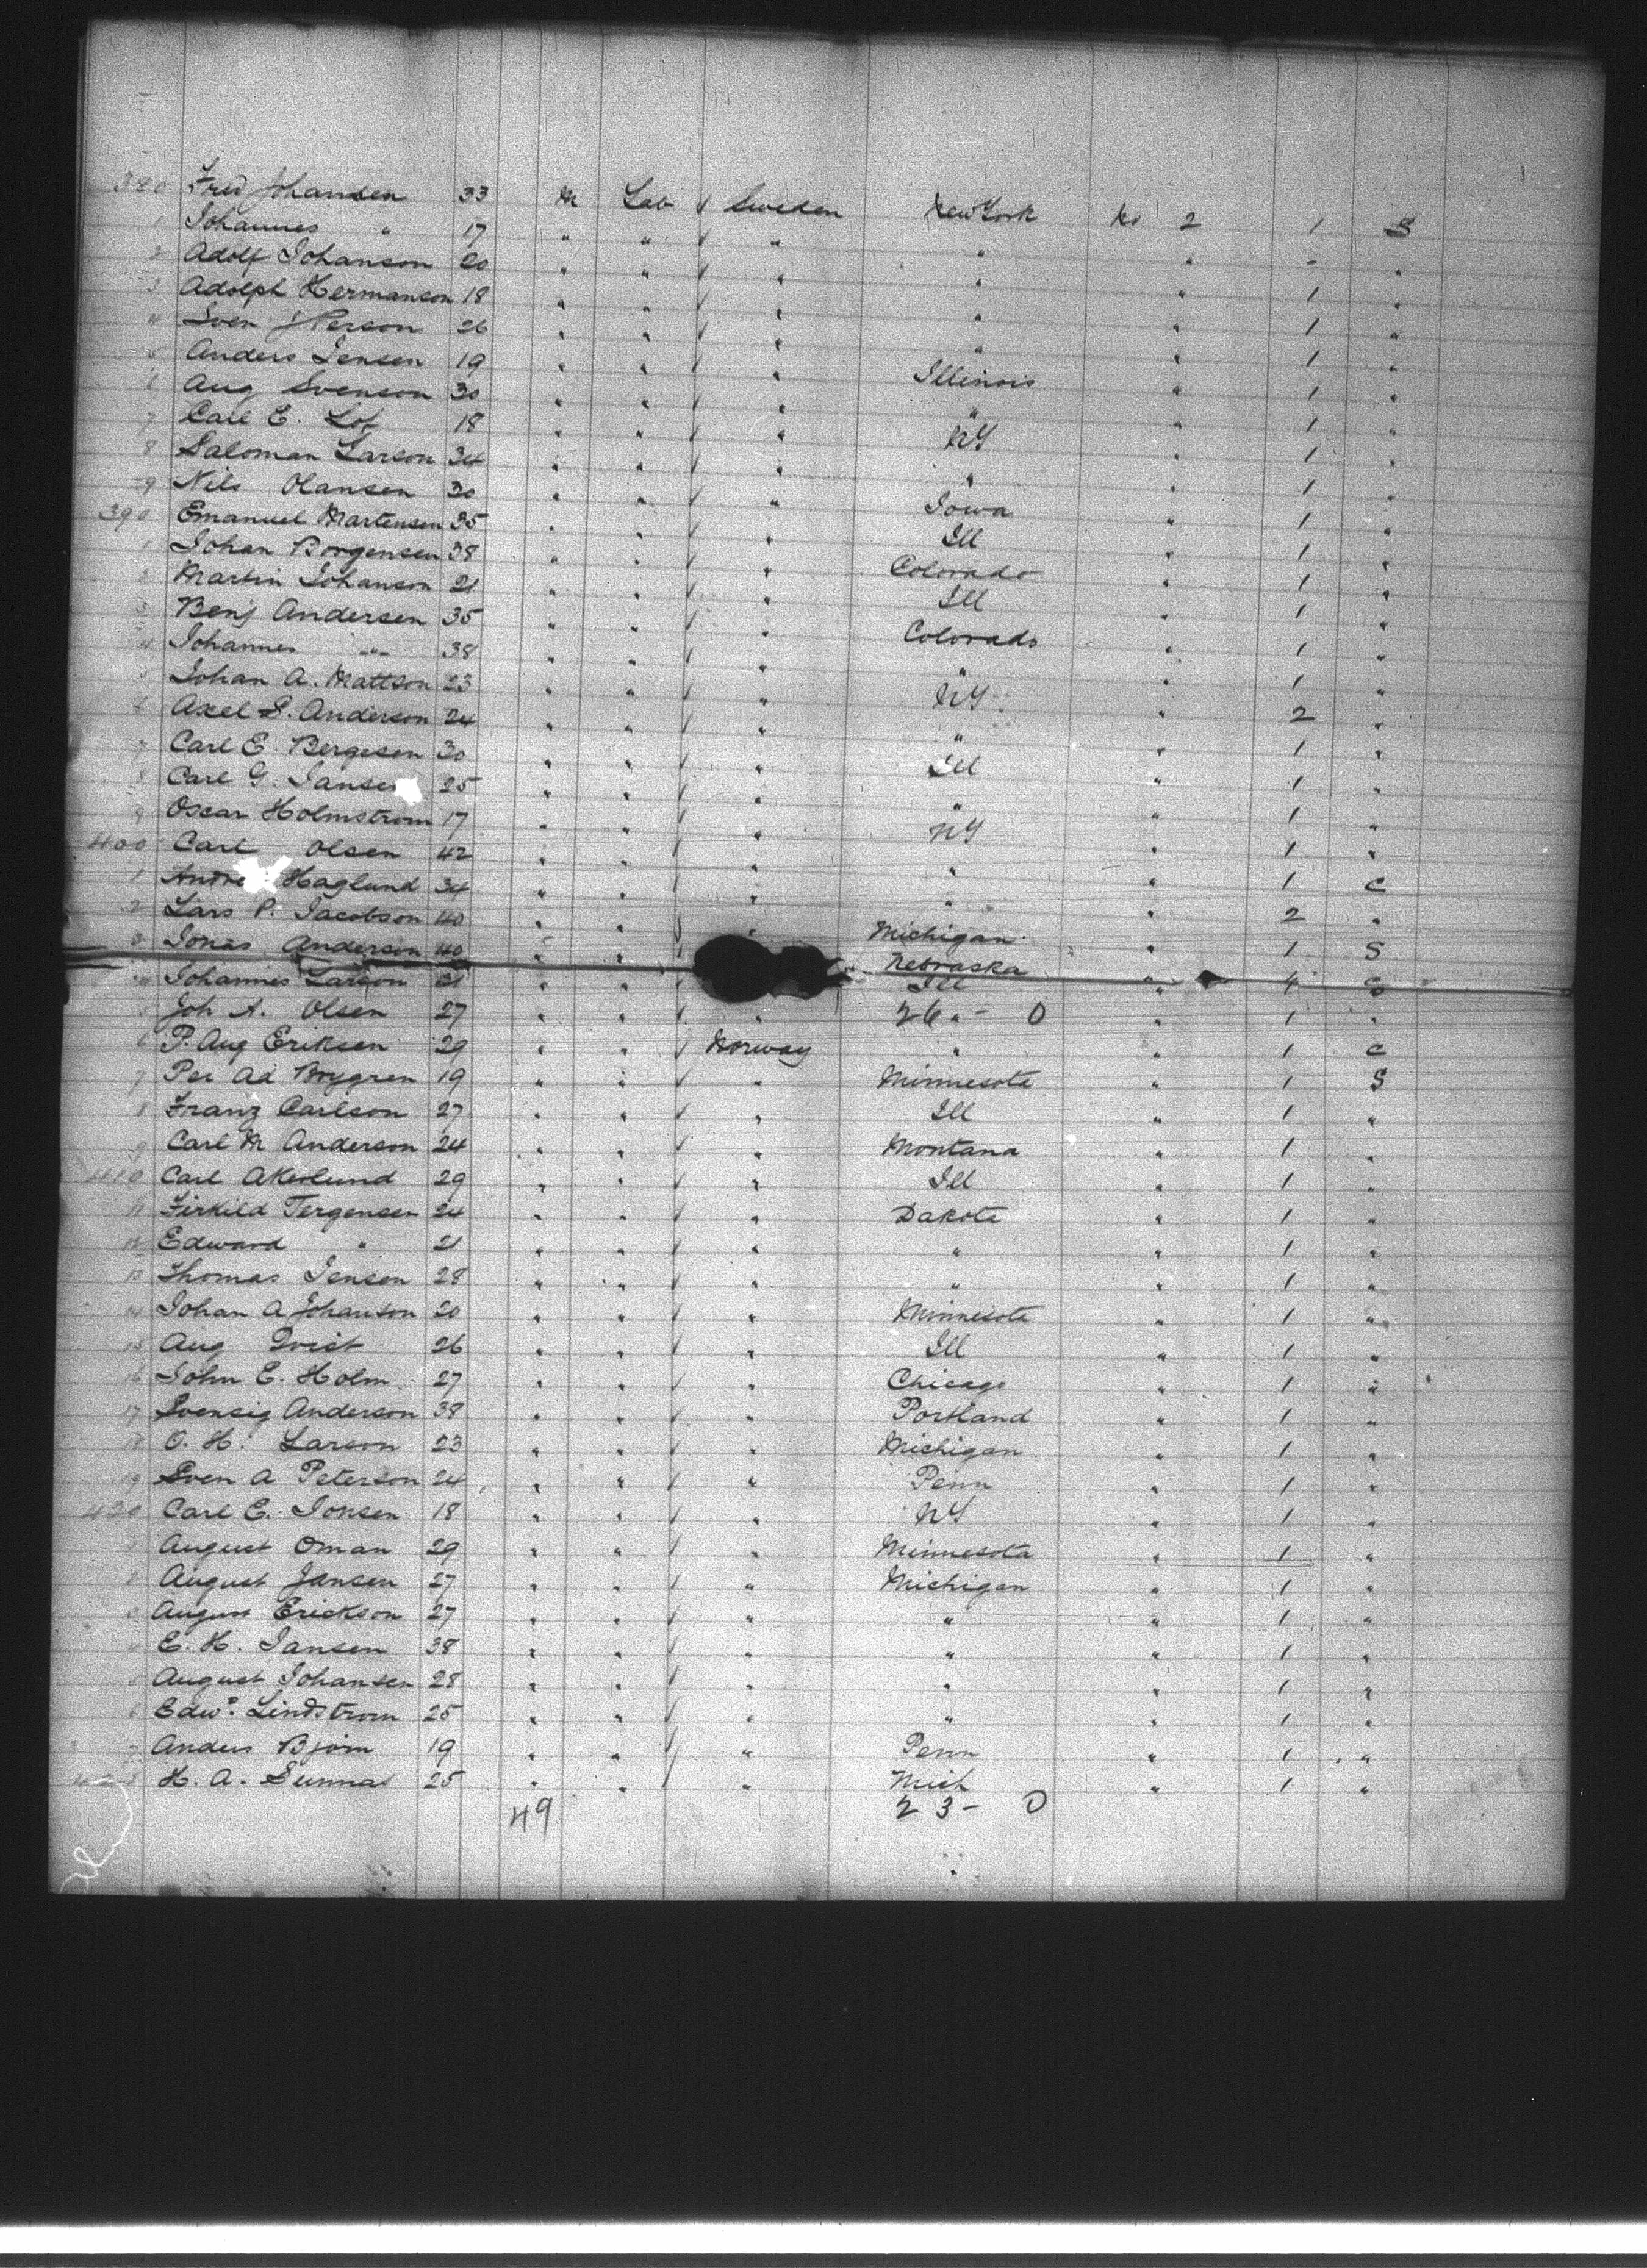 380 Fred Johansen 33 M Lab √ Sweden New York No 2 1 S
1 Johannes " 17 " " √ " " " - "
2 Adolf Johanson 20 " " √ " " " 1 "
3 Adolph Hermanson 18 " " √ " " " 1 "
4 Sven 26 " " √ " " " 1 "
5 Anders Jensen 19 " " √ " Illinois " 1 "
6 Aug Svenson 30 " " √ " " " 1 "
7 Carl E. Lof 18 " " √ " NY " 1 "
8 Saloman Larson 34 " " √ " " " 1 "
9 Nils Olansen 30 " " √ " Iowa " 1 "
390 Emanuel Martensen 35 " " √ " Ill " 1 "
1 Johan Borgensen 38 " " √ " Colorado " 1 "
2 Martin Johanson 21 " " √ " Ill " 1 "
3 Benj Andersen 35 " " √ " Colorado " 1 "
4 Johannes " 38 " " √ " " " 1 "
5 Johan A. Mattson 23 " " √ " NY " 2 "
6 Axel S. Anderson 24 " " √ " " " 1 "
7 Carl E. Bergesen 30 " " √ " Ill " 1 "
8 Carl G. Janse 25 " " √ " " " 1 "
9 Oscar Holmstrom 17 " " √ " NY " 1 "
400 Carl Olsen 42 " " √ " " " 1 C
1 Andre Haglund 34 " " √ " " " 2 "
2 Lars P. Jacobson 40 " " √ " Michigan " 1 S
3 Jonas Anderson 40 " " Nebraska " 4
4 Johannes Larson 21 " " √ Ill " 1 "
5 Joh A. Olsen 27 " " √ " 26 - 0
6 P. Aug Eriksen 29 " " √ Norway " " 1 C
7 Per Ad Brygren 19 " " √ " Minnesota " 1 S
8 Franz Carlson 27 " " √ " Ill " 1 "
9 Carl M Anderson 24 " " √ " Montana " 1 "
410 Carl Akerlund 29 " " √ " Ill " 1 "
11 Firkild Tergensen 24 " " √ " Dakota " 1 "
12 Edward " 21 " " √ " " " 1 "
13 Thomas Jensen 28 " " √ " " " 1 "
14 Johan A Johanson 20 " " √ " Minnesota " 1 "
15 Aug Qvist 26 " " √ " Ill " 1 "
16 John E. Holm 27 " " √ " Chicago " 1 "
17 Svensig Anderson 38 " " √ " Portland " 1 "
18 O. H. Larson 23 " " √ " Michigan " 1 "
19 Sven A Peterson 24 " " √ " Penn " 1 "
420 Carl E. Jonsen 18 " " √ " NY " 1 "
1 August Oman 29 " " √ " Minnesota " 1 "
2 August Jansen 27 " " √ " Michigan " 1 "
3 August Erickson 27 " " √ " " " 1 "
4 E. H. Jansen 38 " " √ " " " 1 "
5 August Johansen 28 " " √ " " " 1 "
6 Edwd. Lindstrom 25 " " √ " " " 1 "
7 Anders Bjorn 19 " " √ " Penn " 1 "
428 H. A. Sunnas 25 " " √ " Mich " 1 "
49 23 - 0